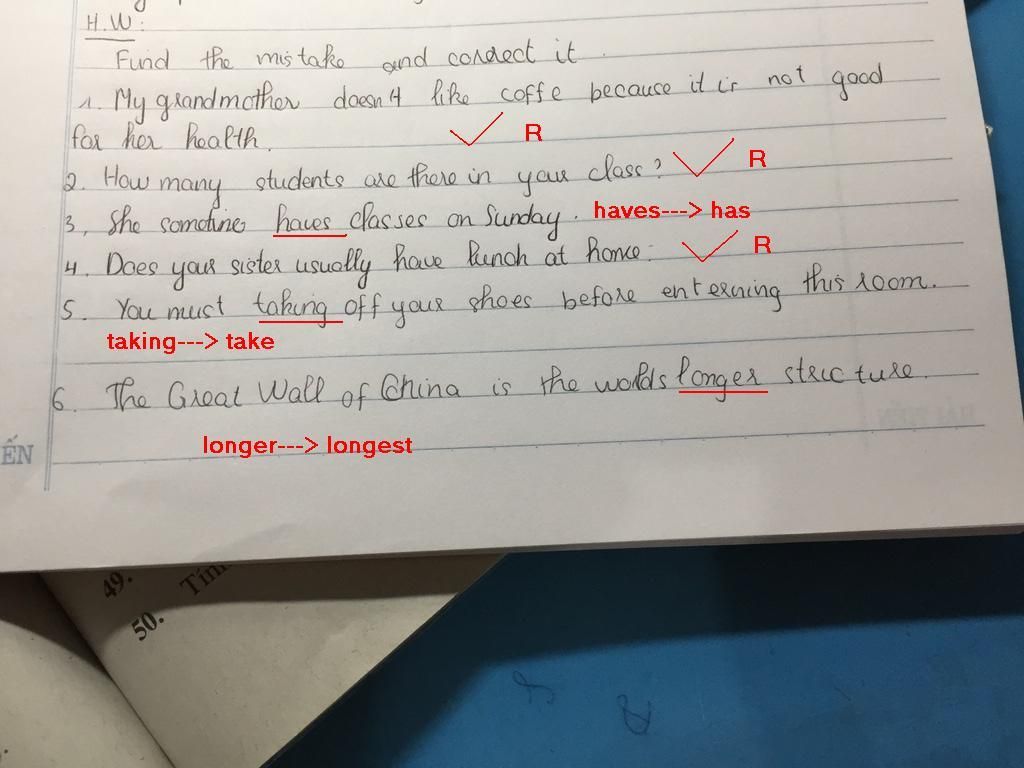 H.W:
Find the mistake and correct it.
1. My grandmother doesn't like coffe because it is not good
for her health. R
2. How many students are there in your class? R
3, She sometines haves classes on Sunday. haves---> has
4. Does your sister usually have lunch at home. R
5. You must taking off your shoes before enterning this room.
taking---> take
6. The Great Wall of China is the worlds longer structure.
longer---> longest
ẾN
49.
50. Tính